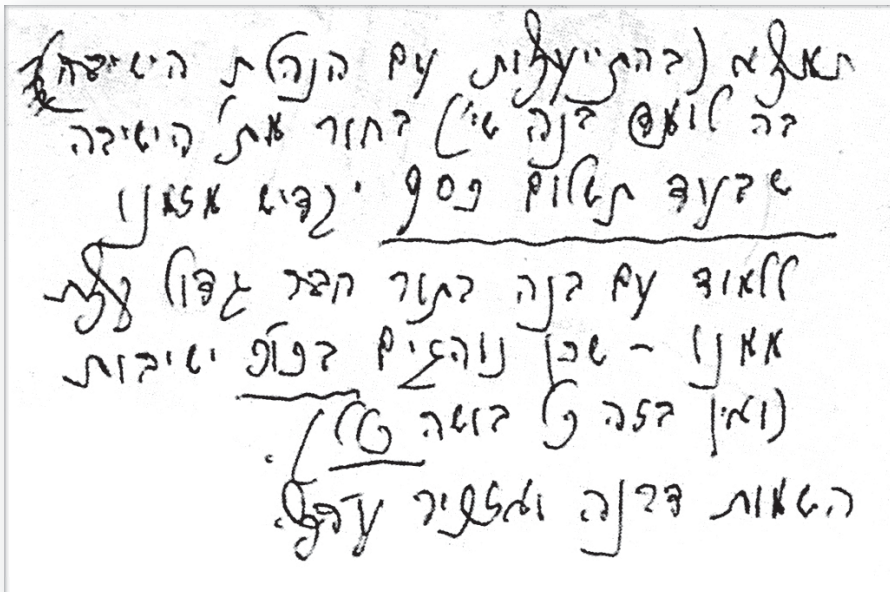 תמצא (בהתייעצות עם הנהלת הישיבה
בה לומד בנה שי') בחור מת' הישיבה
שבעד תשלום כסף יקדיש מזמנו
ללמוד עם בנה בתור חבר גדול קצת
ממנו – שכן נוהגים בכו"כ ישיבות
(ואין בזה כל בושה כלל).
השמות דבנה ואזכיר עה"צ.